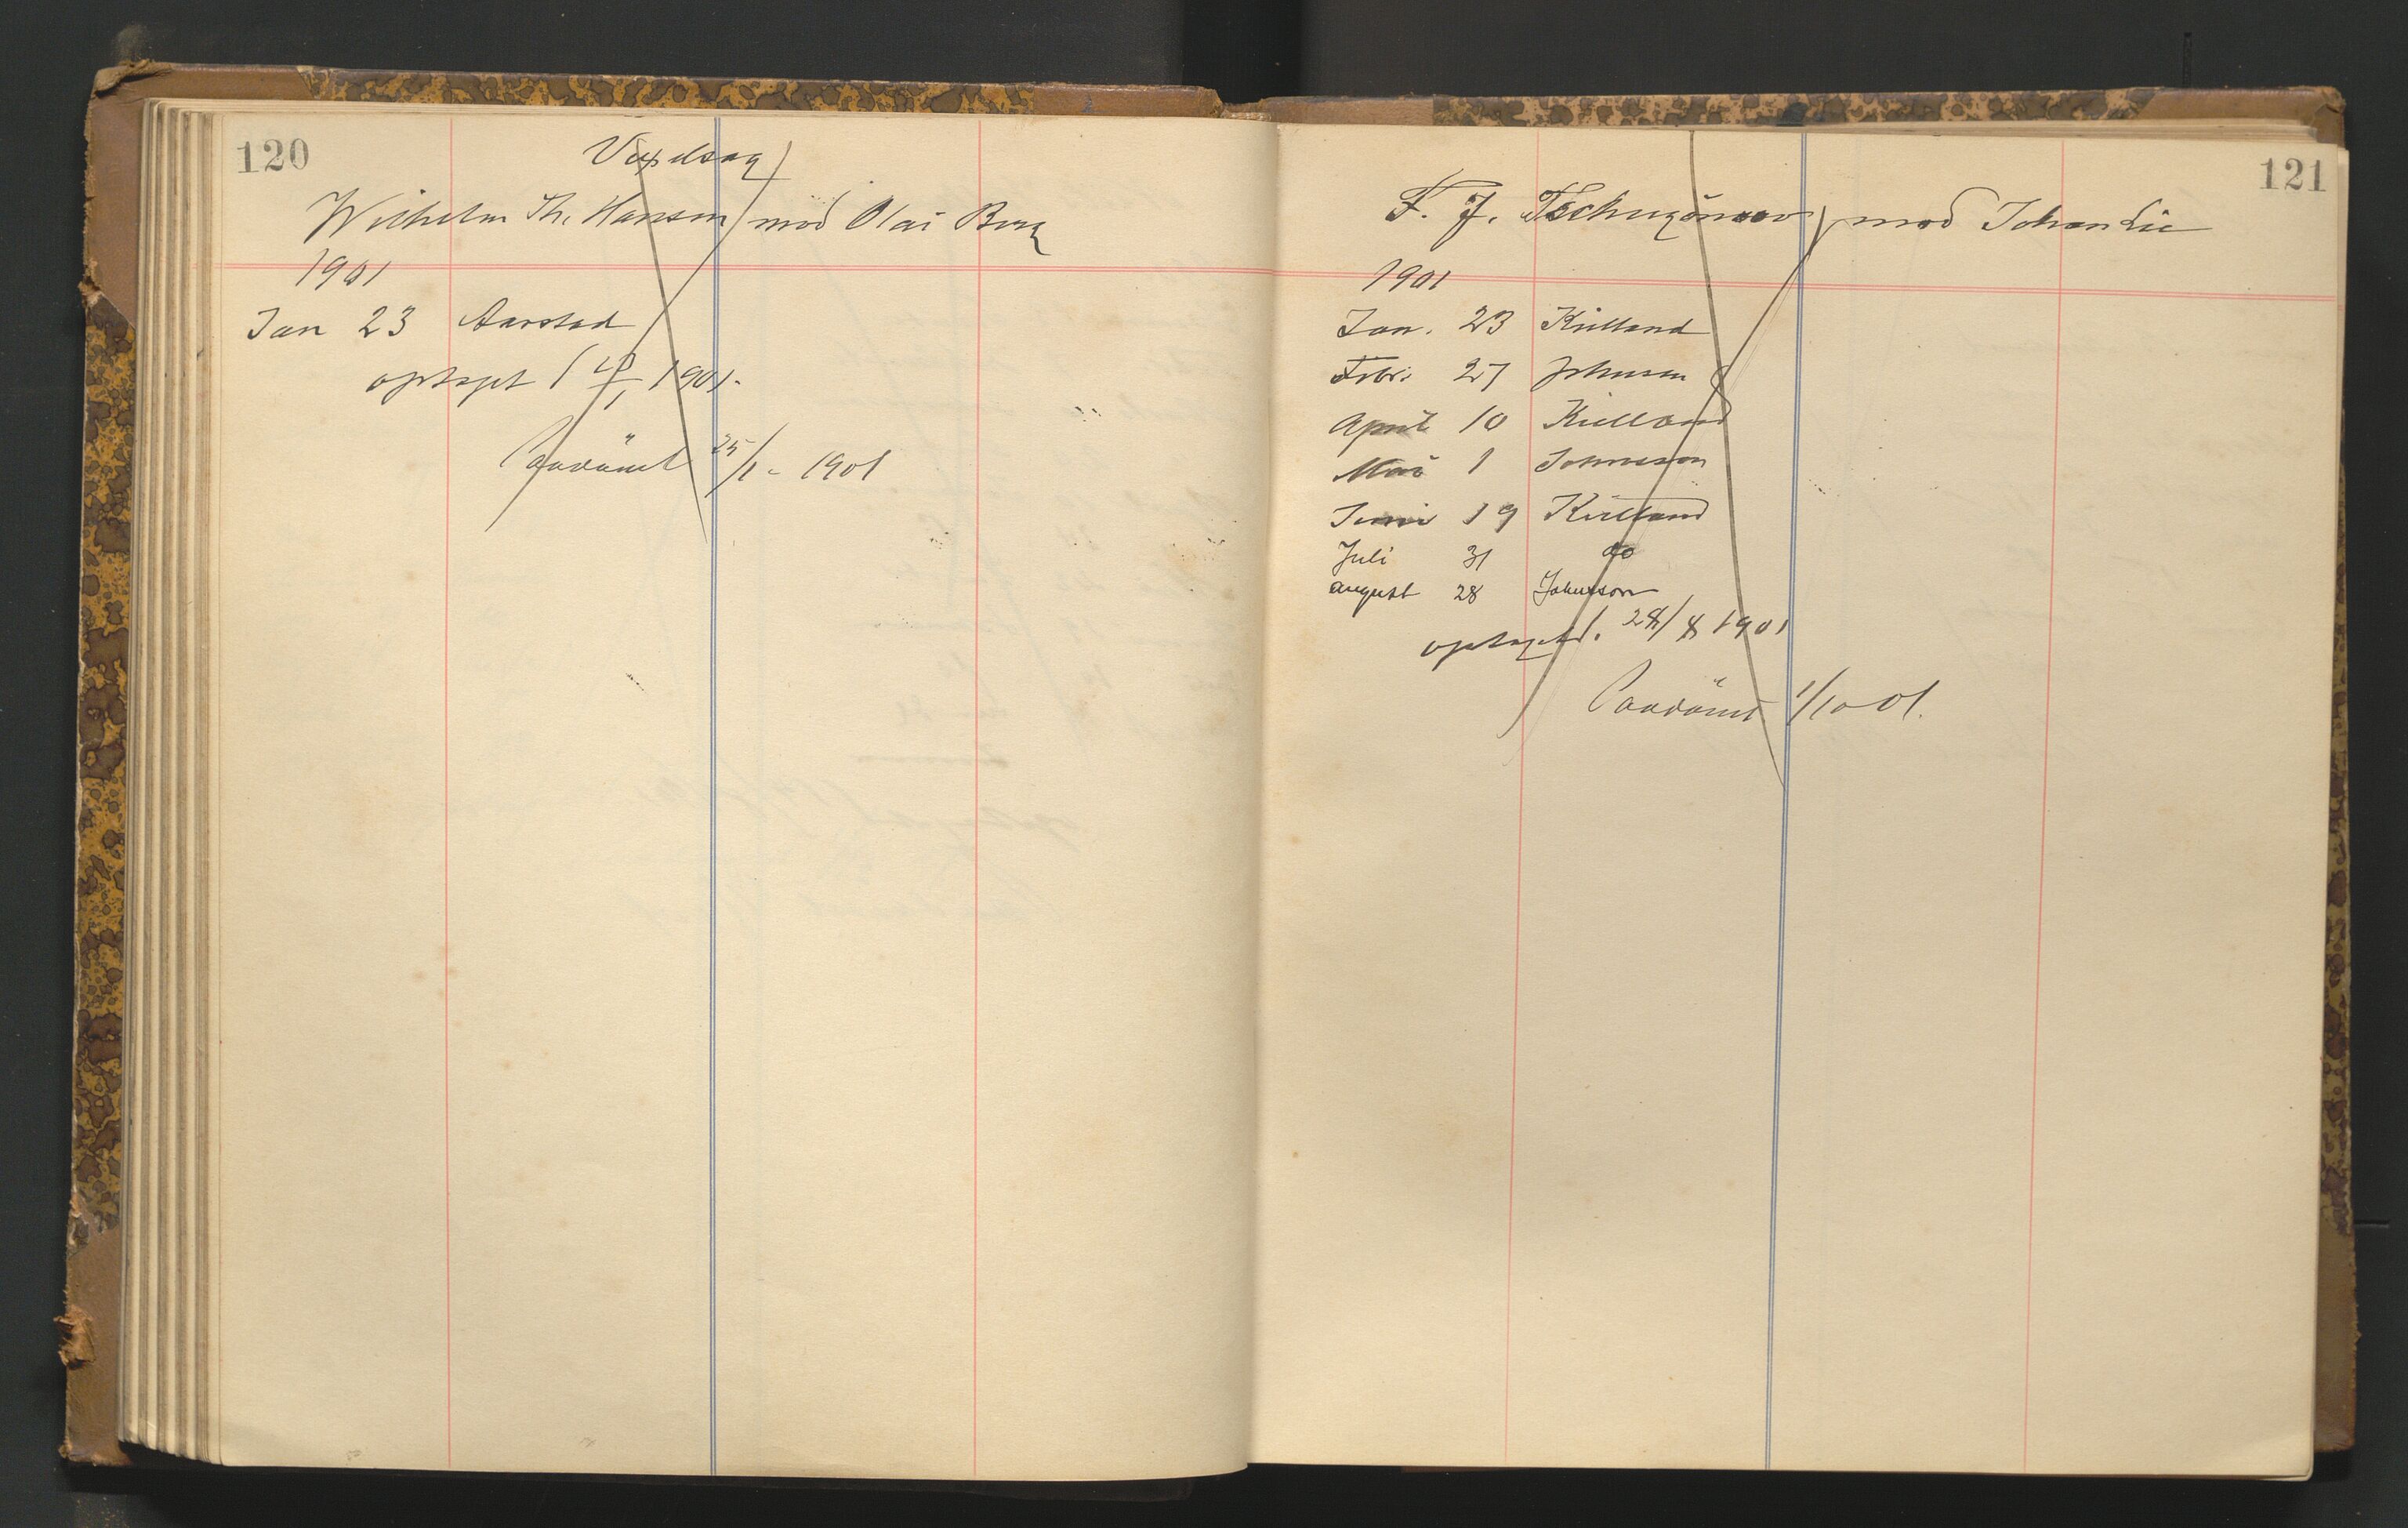 120
Vexelsag
Wilhelm Th. Hansen mod Olai Berg
1901
Jan 23 Aarstad
optaget 1901.
Paadømt 25/1 - 1901
121
F. J. mod Johan Lie
1901
Jan. 23 Kielland
Febr. 27 Johnson
April 10 Kielland
Mai 1 Johnsson
Juni 19 Kielland
Juli 31 do
august 28 Johnsson
optaget d. 28/8 1901
Paadømt 1/10 01.